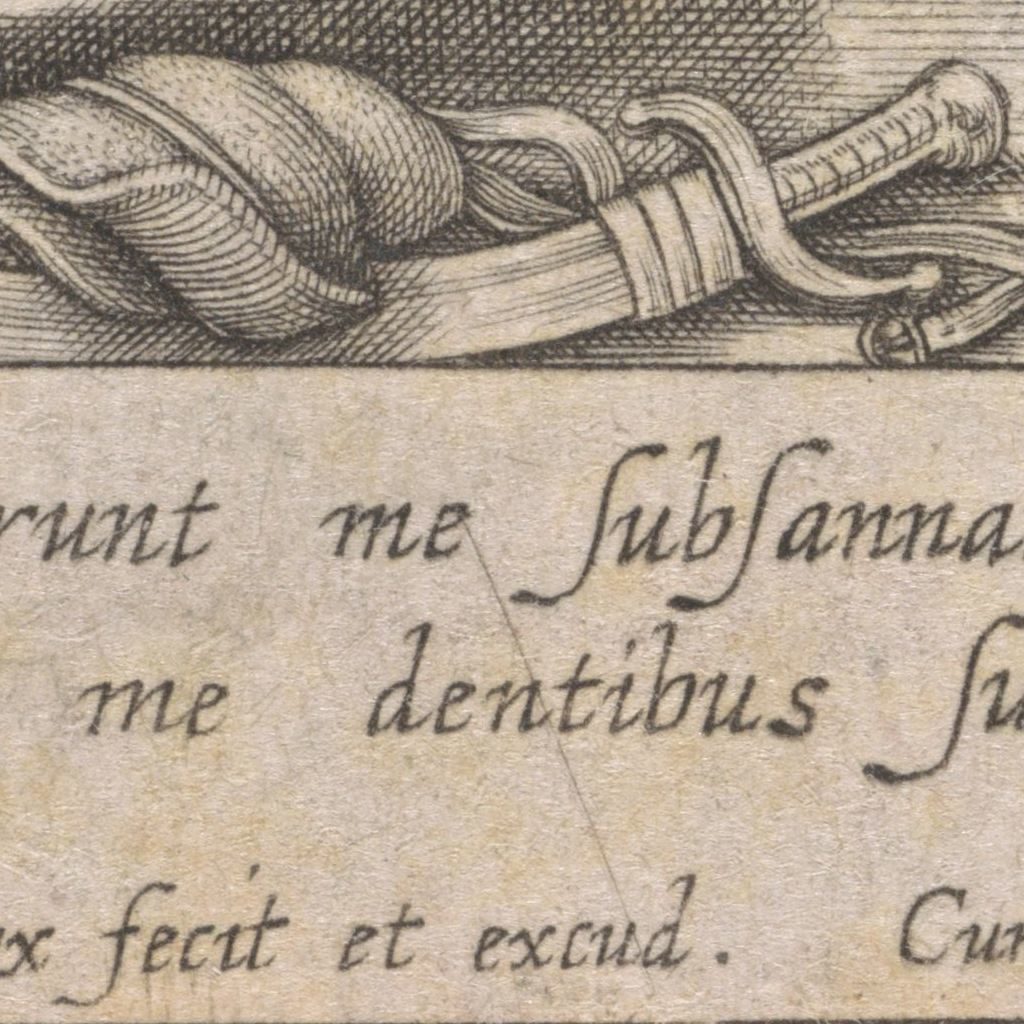 runt me ſubſanna
me dentibus ſu
x fecit et excud. Cum